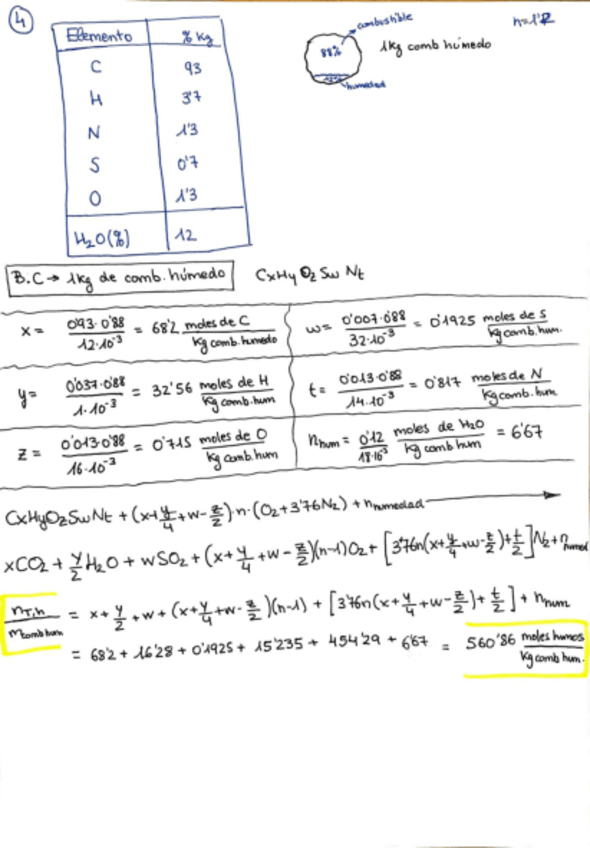 4
Elemento % Kg
C 93
H 3'7
N 1'3
S 0'7
O 1'3
H₂O(%) 12
combustible
88%
humedad
1Kg comb húmedo
n=1'2
B.C → 1kg de comb. húmedo CxHyOzSwNt
x = 0'93·0'88 / 12·10⁻³ = 68'2 moles de C / Kg comb. humedo
w = 0'007·0'88 / 32·10⁻³ = 0'1925 moles de S / Kg comb. hum.
y = 0'037·0'88 / 1·10⁻³ = 32'56 moles de H / Kg comb. hum
t = 0'013·0'88 / 14·10⁻³ = 0'817 moles de N / Kg comb. hum
z = 0'013·0'88 / 16·10⁻³ = 0'715 moles de O / Kg comb. hum
nhum = 0'12 / 18·10⁻³ moles de H₂O / Kg comb hum = 6'67
CxHyOzSwNt + (x+y/4+w-z/2)·n·(O₂+3'76N₂) + nhumedad →
xCO₂ + y/2 H₂O + wSO₂ + (x+y/4+w-z/2)(n-1)O₂ + [3'76n(x+y/4+w-z/2)+t/2]N₂+nhumed
nT,h / mcomb hum = x + y/2 + w + (x+y/4+w-z/2)(n-1) + [3'76n(x+y/4+w-z/2)+t/2] + nhum
= 68'2 + 16'28 + 0'1925 + 15'235 + 454'29 + 6'67 = 560'86 moles humos / Kg comb hum.